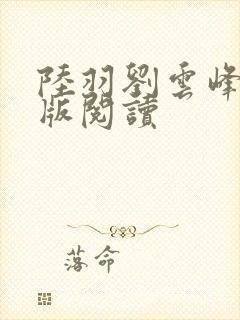 陸羽劉雲峰
版閱讀
落命